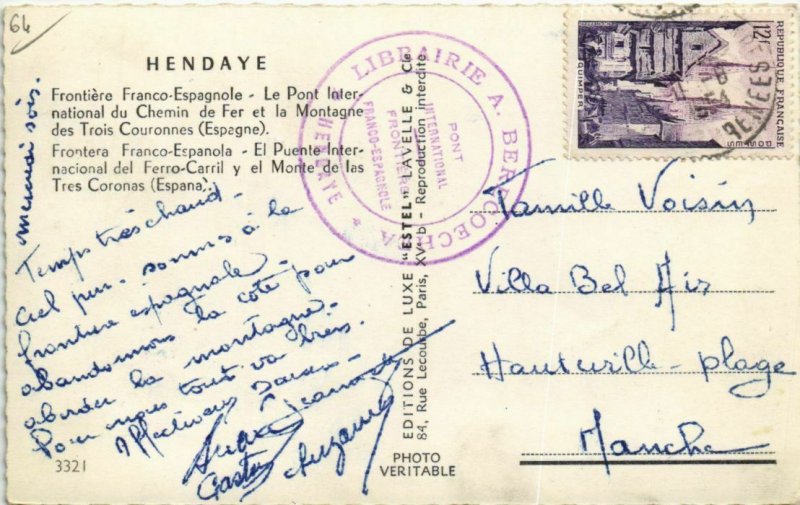 64
HENDAYE
Frontière Franco-Espagnole - Le Pont Inter-
national du Chemin de Fer et la Montagne
des Trois Couronnes (Espagne).
Frontera Franco-Espanola - El Puente Inter-
nacional del Ferro-Carril y el Monte de las
Tres Coronas (Espana).
Mercredi soir.
Temps très chaud -
ciel pur - sommes à la
frontière espagnole -
abandonnons la côte pour
aborder la montagne -
Pour nous tout va bien.
Affectueux
Jeannette
Gaston Suzanne
3321
LIBRAIRIE A. BERROCOECHEA
* HENDAYE *
PONT
INTERNATIONAL
FRONTIÈRE
FRANCO-ESPAGNOLE
EDITIONS DE LUXE "ESTEL" LAVELLE & Cie
84, Rue Lecourbe, Paris, XVe - Reproduction interdite
PHOTO
VERITABLE
12f
REPUBLIQUE FRANÇAISE
QUIMPER
POSTES
54
Famille Voisin
Villa Bel Air
Hauteville - plage
Manche